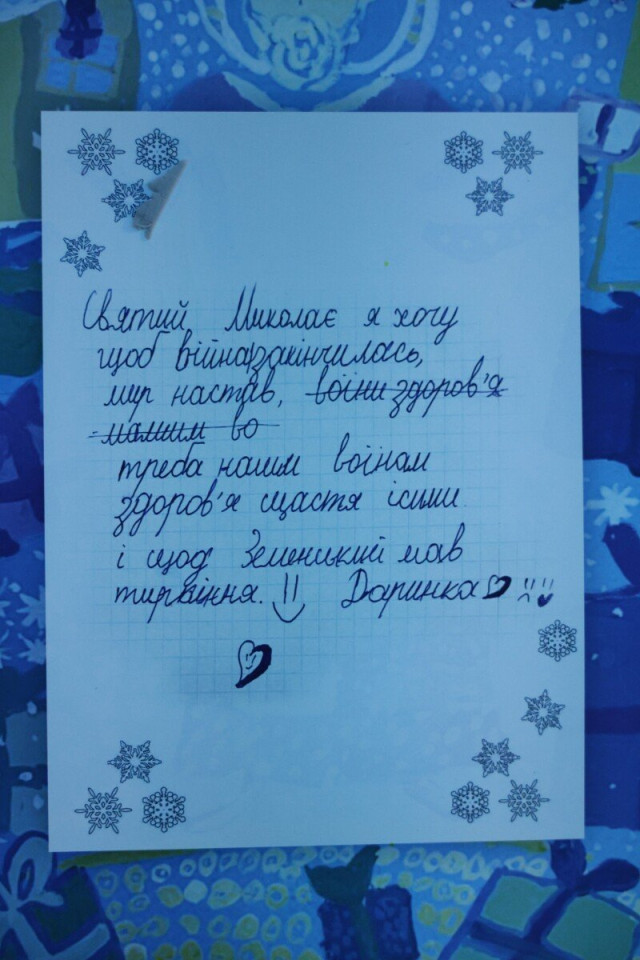 Святий Миколає я хочу
щоб війна закінчилась,
мир настав, воїни здоров'я
нашим во
треба нашим воїнам
здоров'я щастя і сили
і щоб Зеленикий мав
тирпіння. Даринка